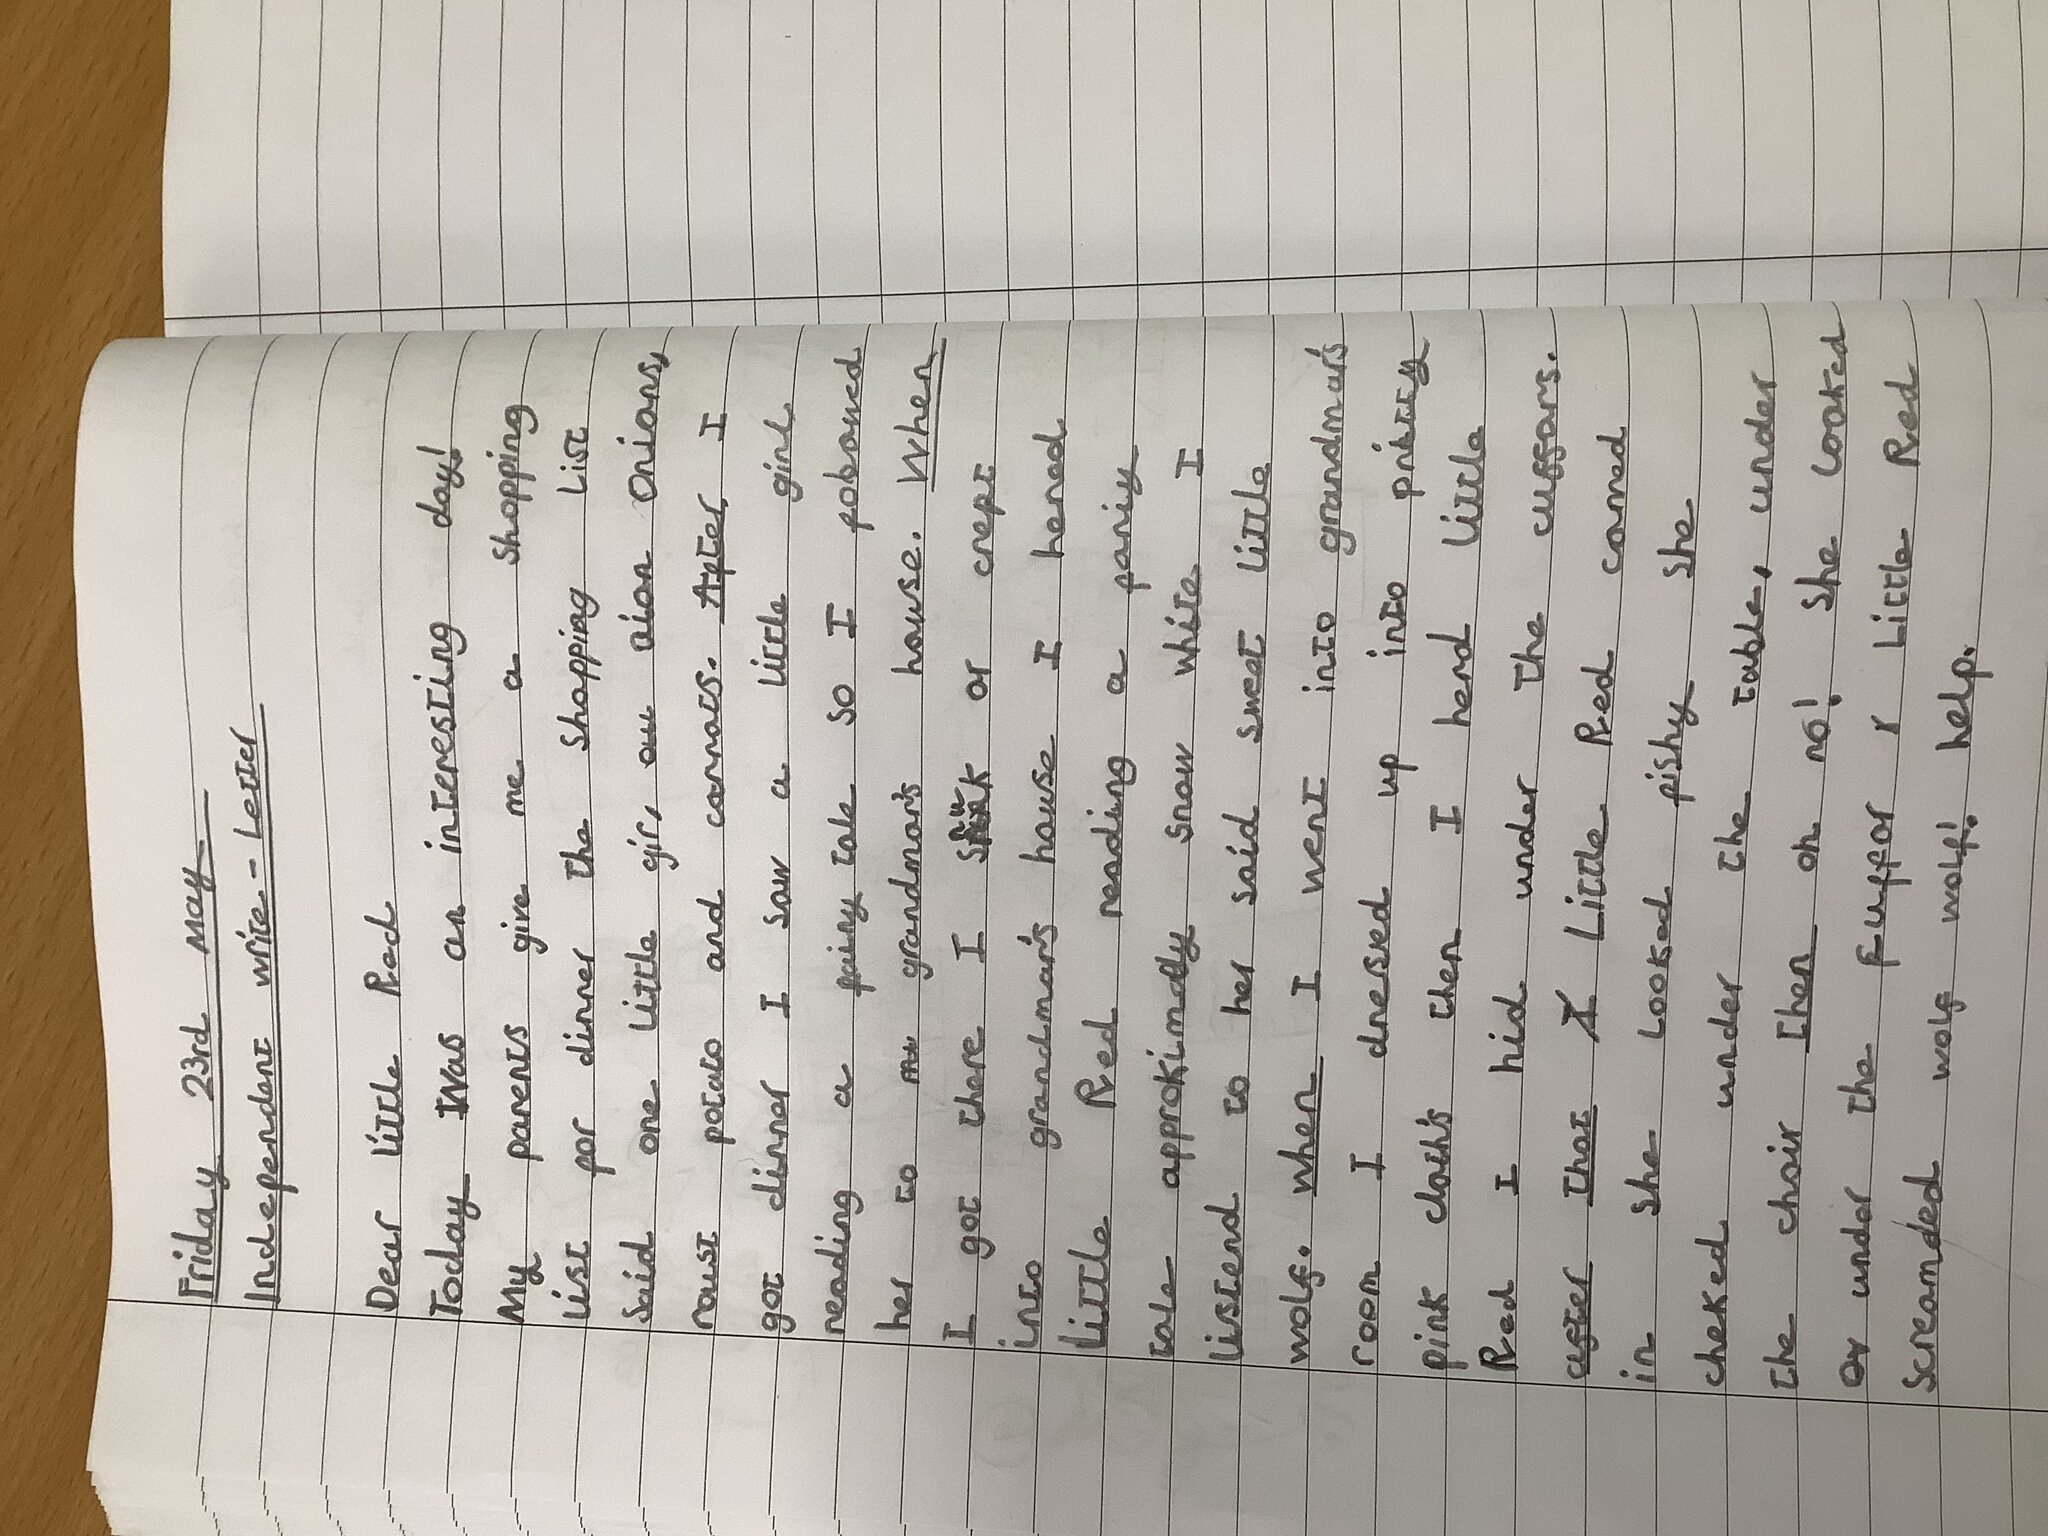 Friday 23rd May
Independant write - Letter
Dear little Red
Today Was an interesting day!
My parents give me a shopping
List for dinner the shopping List
Said one little gir, au aion Onions,
roust potato and carrots. After I
got dinner I saw a little girl
reading a fairy tale so I folowed
her to grandmar's house. When
I got there I snu or crept
into grandmar's house I hered
Little Red reading a fariy
tale approkimatly snow white I
listend to her said sweet little
wolf. When I went into grandmar's
room I dressed up into prittty
pink cloth's then I herd little
Red I hid under the cuffors.
after that Little Red comed
in she looked fishy she
cheked under the table, under
the chair then oh no! she looked
or under the Fuffor Little Red
Screamded wolf wolf! help.